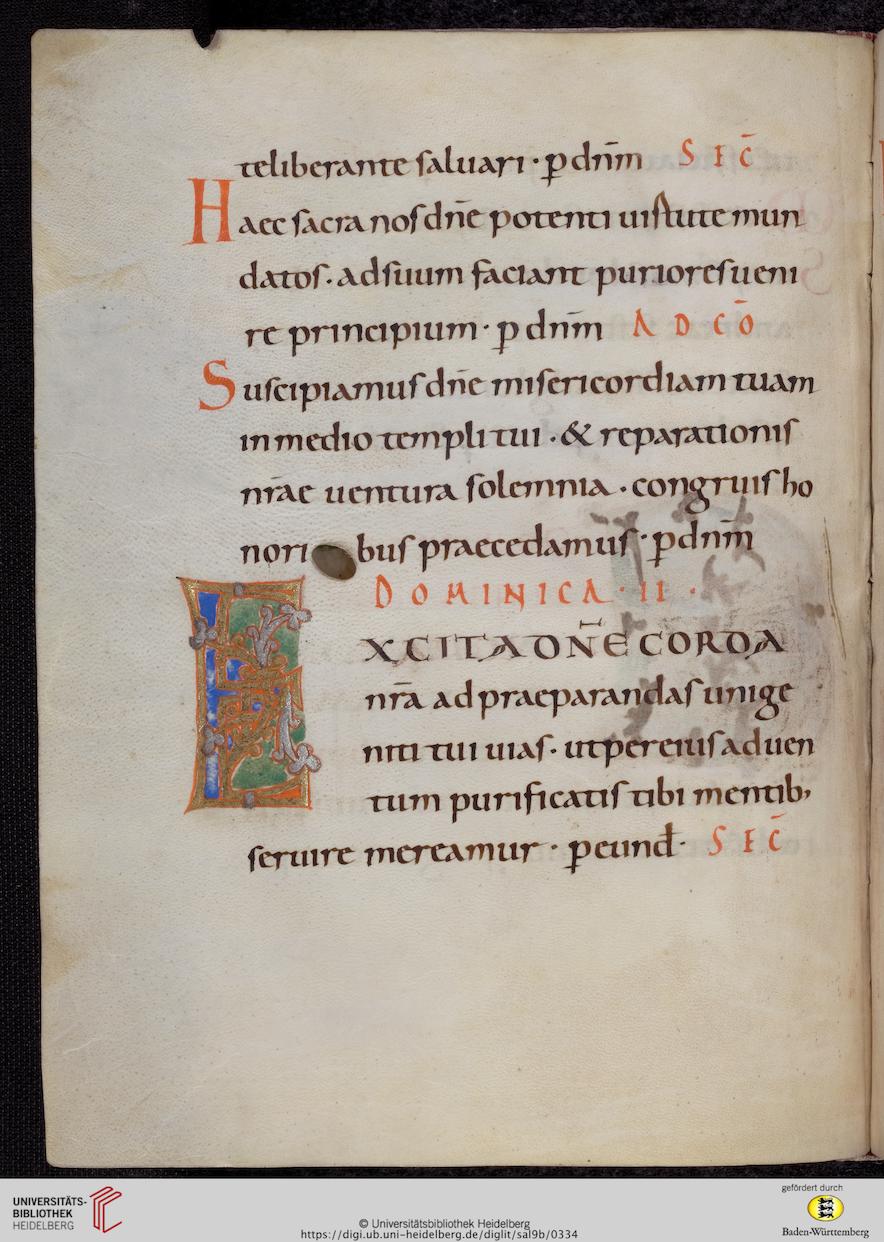 teliberante saluari · p̲ dn̄m SEC̄
Haec sacra nos dn̄e potenti uirtute mun
datos · ad suum faciant puriores ueni
re principium · p̲ dn̄m AD CŌ
Suscipiamus dn̄e misericordiam tuam
in medio templi tui · & reparationis
nr̄ae uentura solemnia · congruis ho
nori bus praecedamus · p̲ dn̄m
DOMINICA · II ·
EXCITA DN̄E CORDA
nr̄a ad praeparandas unige
niti tui uias · ut per eius aduen
tum purificatis tibi mentib,
seruire mereamur · p̲ eund̄ · SEC̄
UNIVERSITÄTS-
BIBLIOTHEK
HEIDELBERG
© Universitätsbibliothek Heidelberg
https://digi.ub.uni-heidelberg.de/diglit/sal9b/0334
gefördert durch
Baden-Württemberg